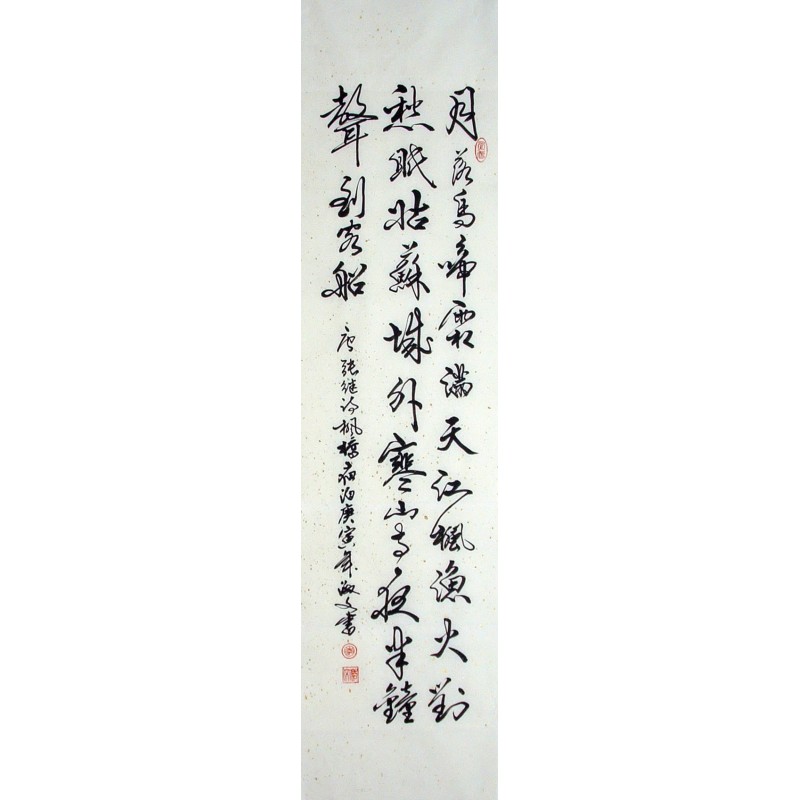 月落烏啼霜滿天江楓漁火對
愁眠姑蘇城外寒山寺夜半鐘
聲到客船
唐張继诗楓橋夜泊庚寅年敬文書